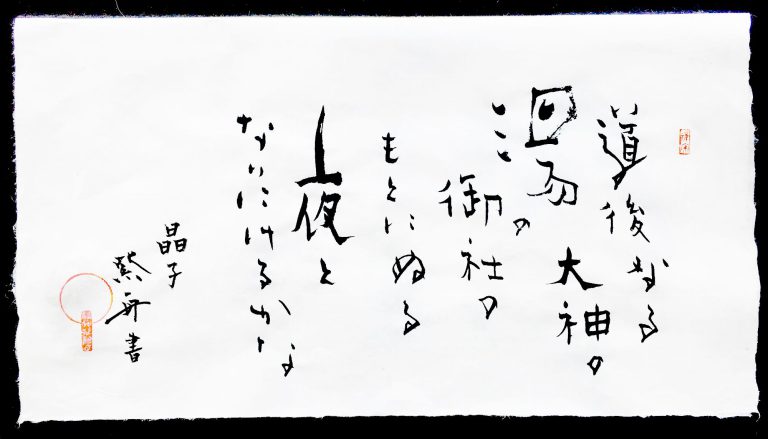 道後なる
湯の
大神の
御社の
もとにぬる
夜と
なりにけるかな
晶子
紫舟書